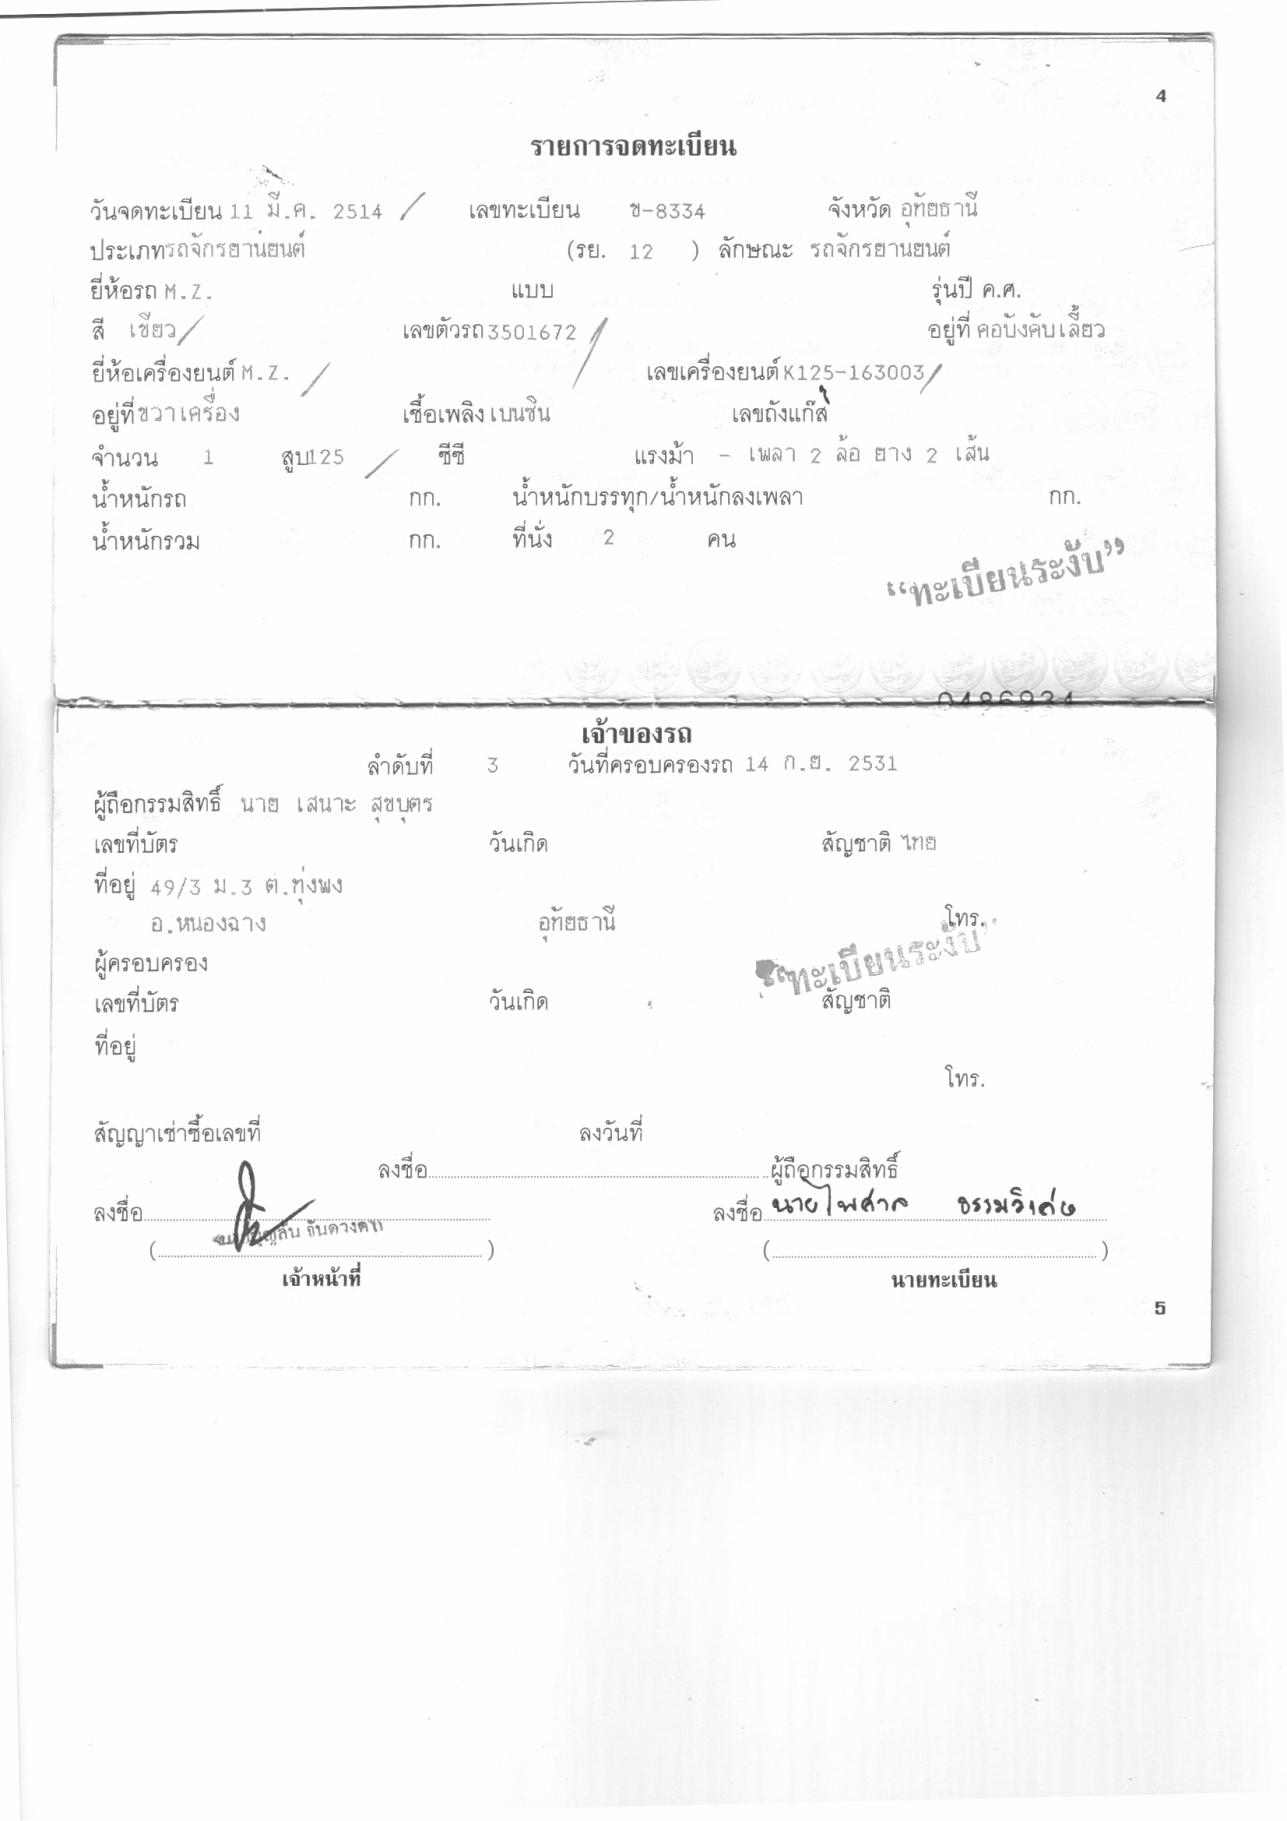 4
รายการจดทะเบียน
วันจดทะเบียน 11 มี.ค. 2514 / เลขทะเบียน ข-8334 จังหวัด อุทัยธานี
ประเภทรถจักรยานยนต์ (รย. 12 ) ลักษณะ รถจักรยานยนต์
ยี่ห้อรถ M.Z. แบบ รุ่นปี ค.ศ.
สี เขียว / เลขตัวรถ 3501672 / อยู่ที่ คอบังคับเลี้ยว
ยี่ห้อเครื่องยนต์ M.Z. / เลขเครื่องยนต์ K125-163003 /
อยู่ที่ ขวาเครื่อง เชื้อเพลิง เบนซิน เลขถังแก๊ส
จำนวน 1 สูบ 125 / ซีซี แรงม้า - เพลา 2 ล้อ ยาง 2 เส้น
น้ำหนักรถ กก. น้ำหนักบรรทุก/น้ำหนักลงเพลา กก.
น้ำหนักรวม กก. ที่นั่ง 2 คน
“ทะเบียนระงับ”
0486934
เจ้าของรถ
ลำดับที่ 3 วันที่ครอบครองรถ 14 ก.ย. 2531
ผู้ถือกรรมสิทธิ์ นาย เสนาะ สุขบุตร
เลขที่บัตร วันเกิด สัญชาติ ไทย
ที่อยู่ 49/3 ม.3 ต.ทุ่งพง
อ.หนองฉาง อุทัยธานี โทร.
ผู้ครอบครอง “ทะเบียนระงับ”
เลขที่บัตร วันเกิด สัญชาติ
ที่อยู่
โทร.
สัญญาเช่าซื้อเลขที่ ลงวันที่
ลงชื่อ ผู้ถือกรรมสิทธิ์
ลงชื่อ ลงชื่อ นายไพศาล ธรรมวิเศษ
( ) ( )
เจ้าหน้าที่ นายทะเบียน
5